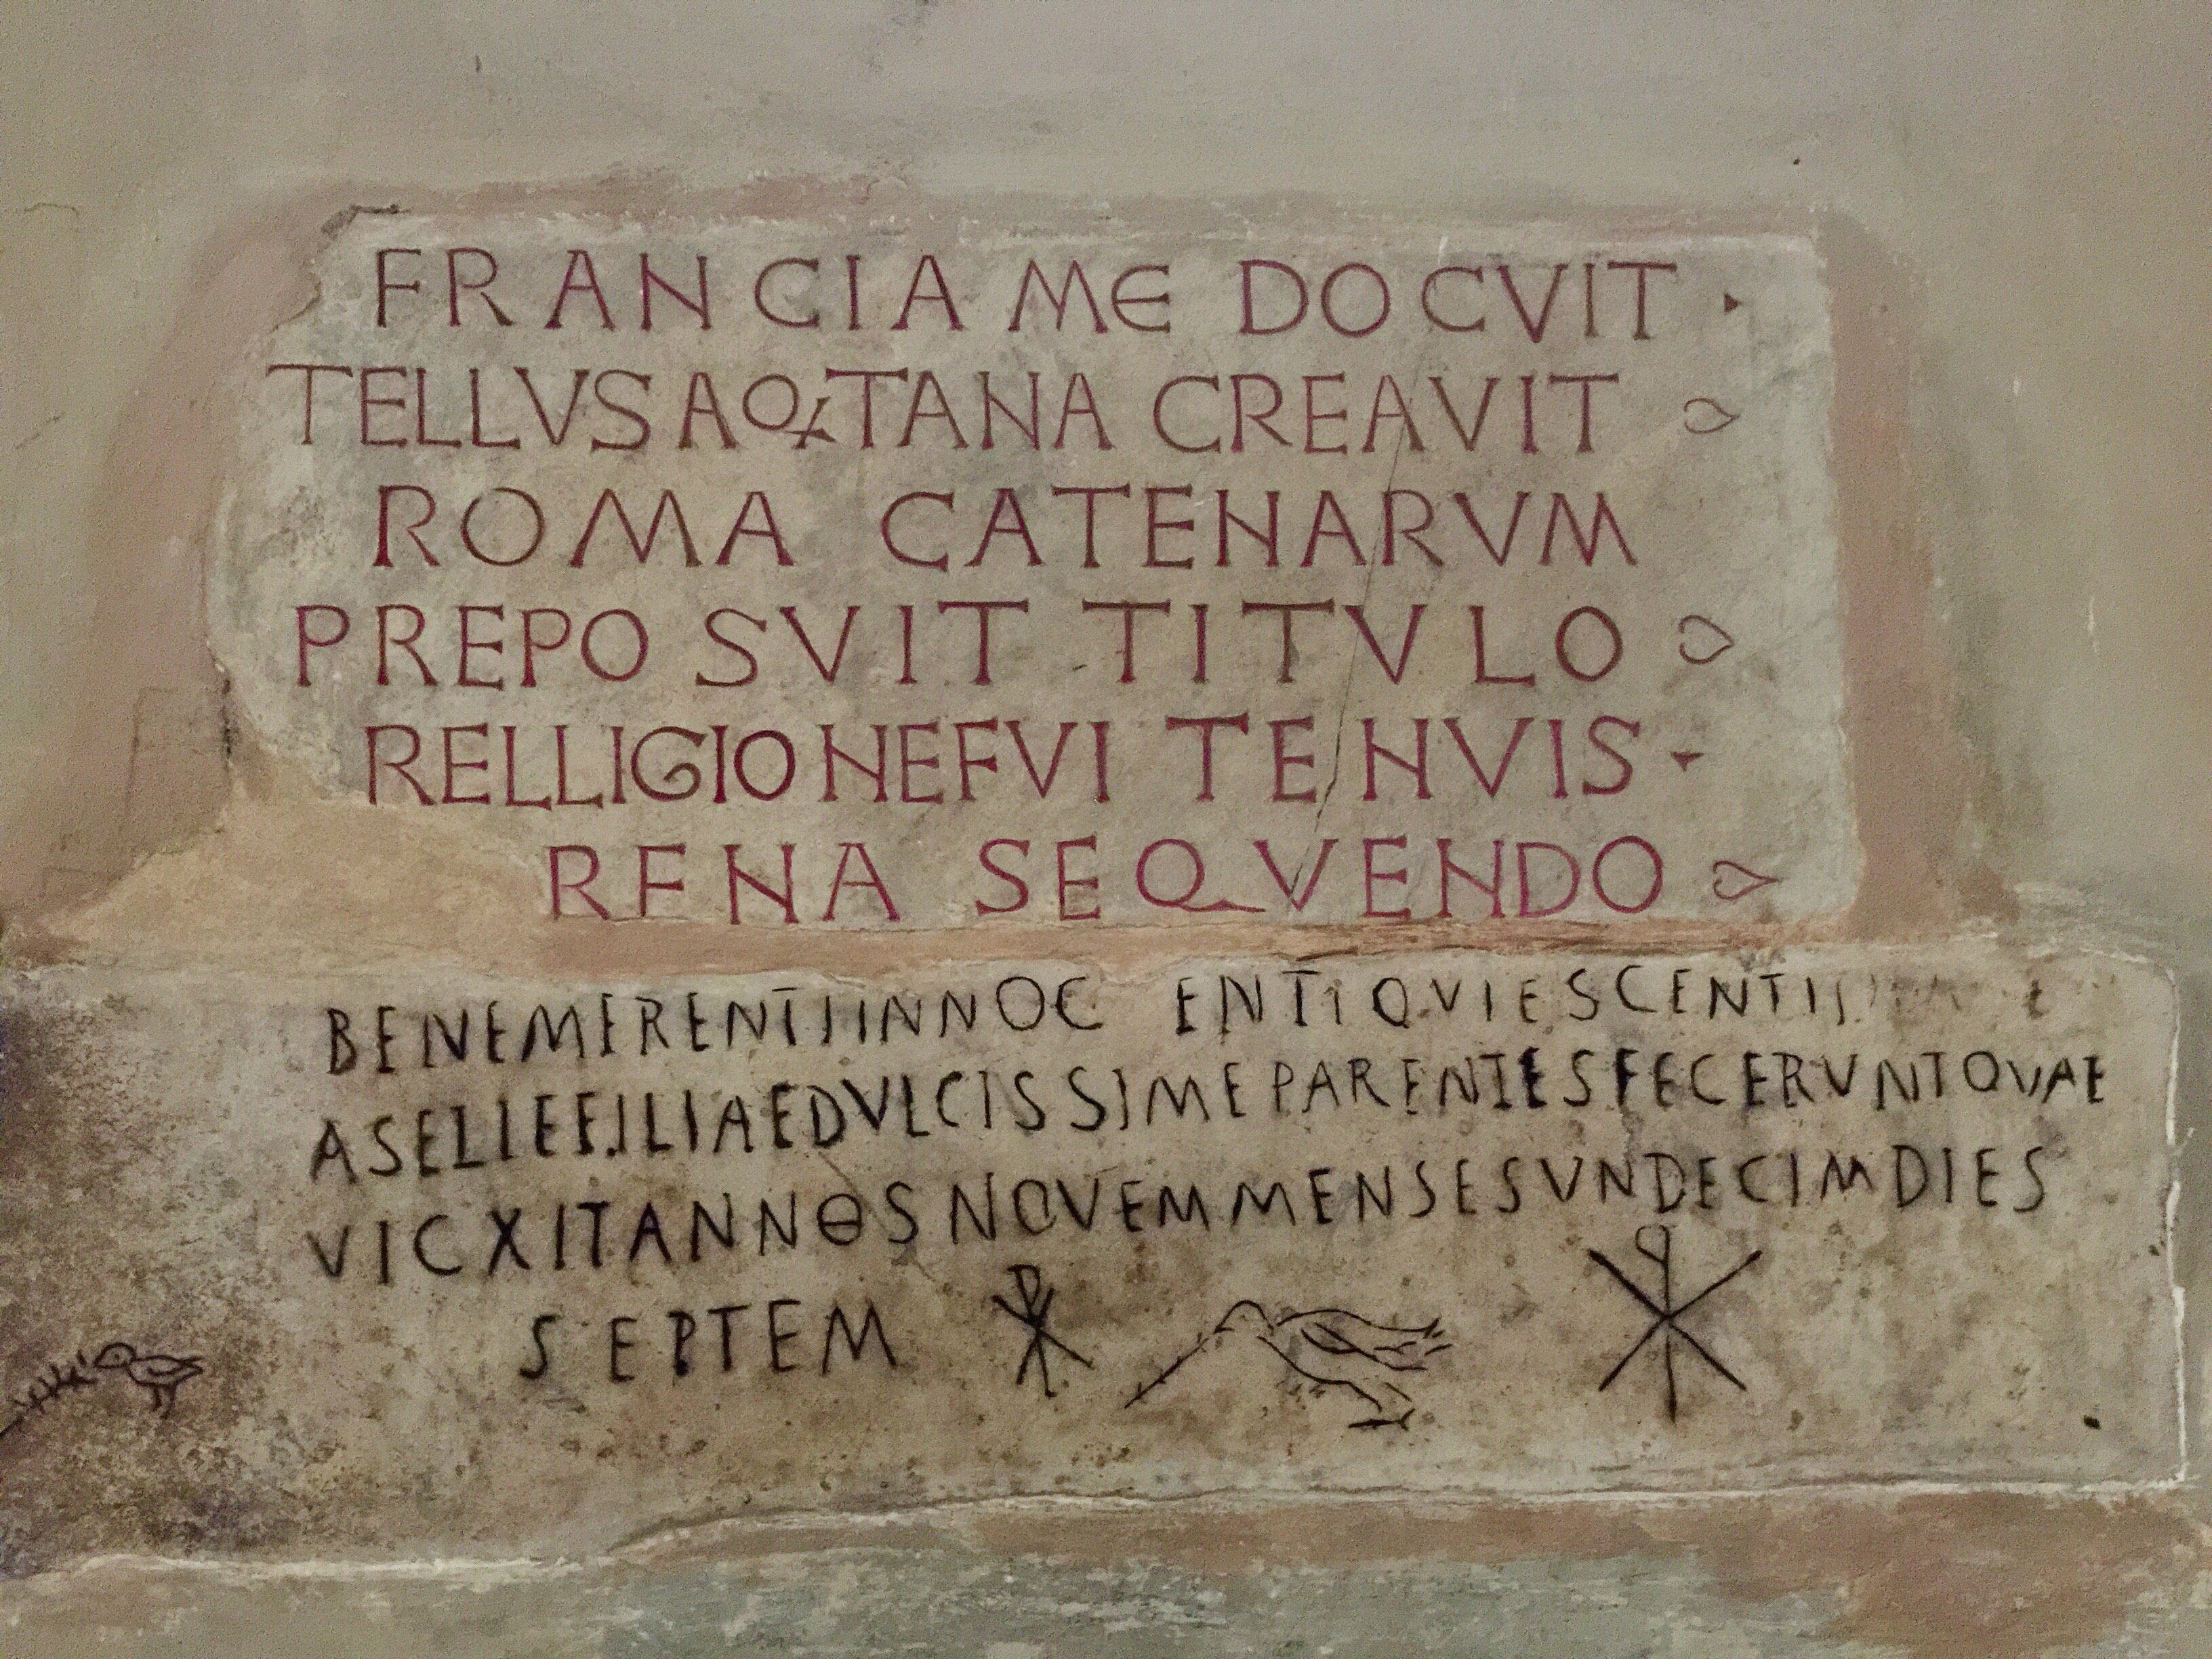 FRANCIA ME DOCVIT
TELLVS AQITANA CREAVIT
ROMA CATENARVM
PREPOSVIT TITVLO
RELLIGIONE FVI TENVIS
RENA SEQVENDO
BENEMERENTI INNOCENTI QVIESCENTI
ASELLIE FILIAE DVLCISSIME PARENTES FECERVNT QVAE
VICXIT ANNOS NOVEM MENSES VNDECIM DIES
SEPTEM